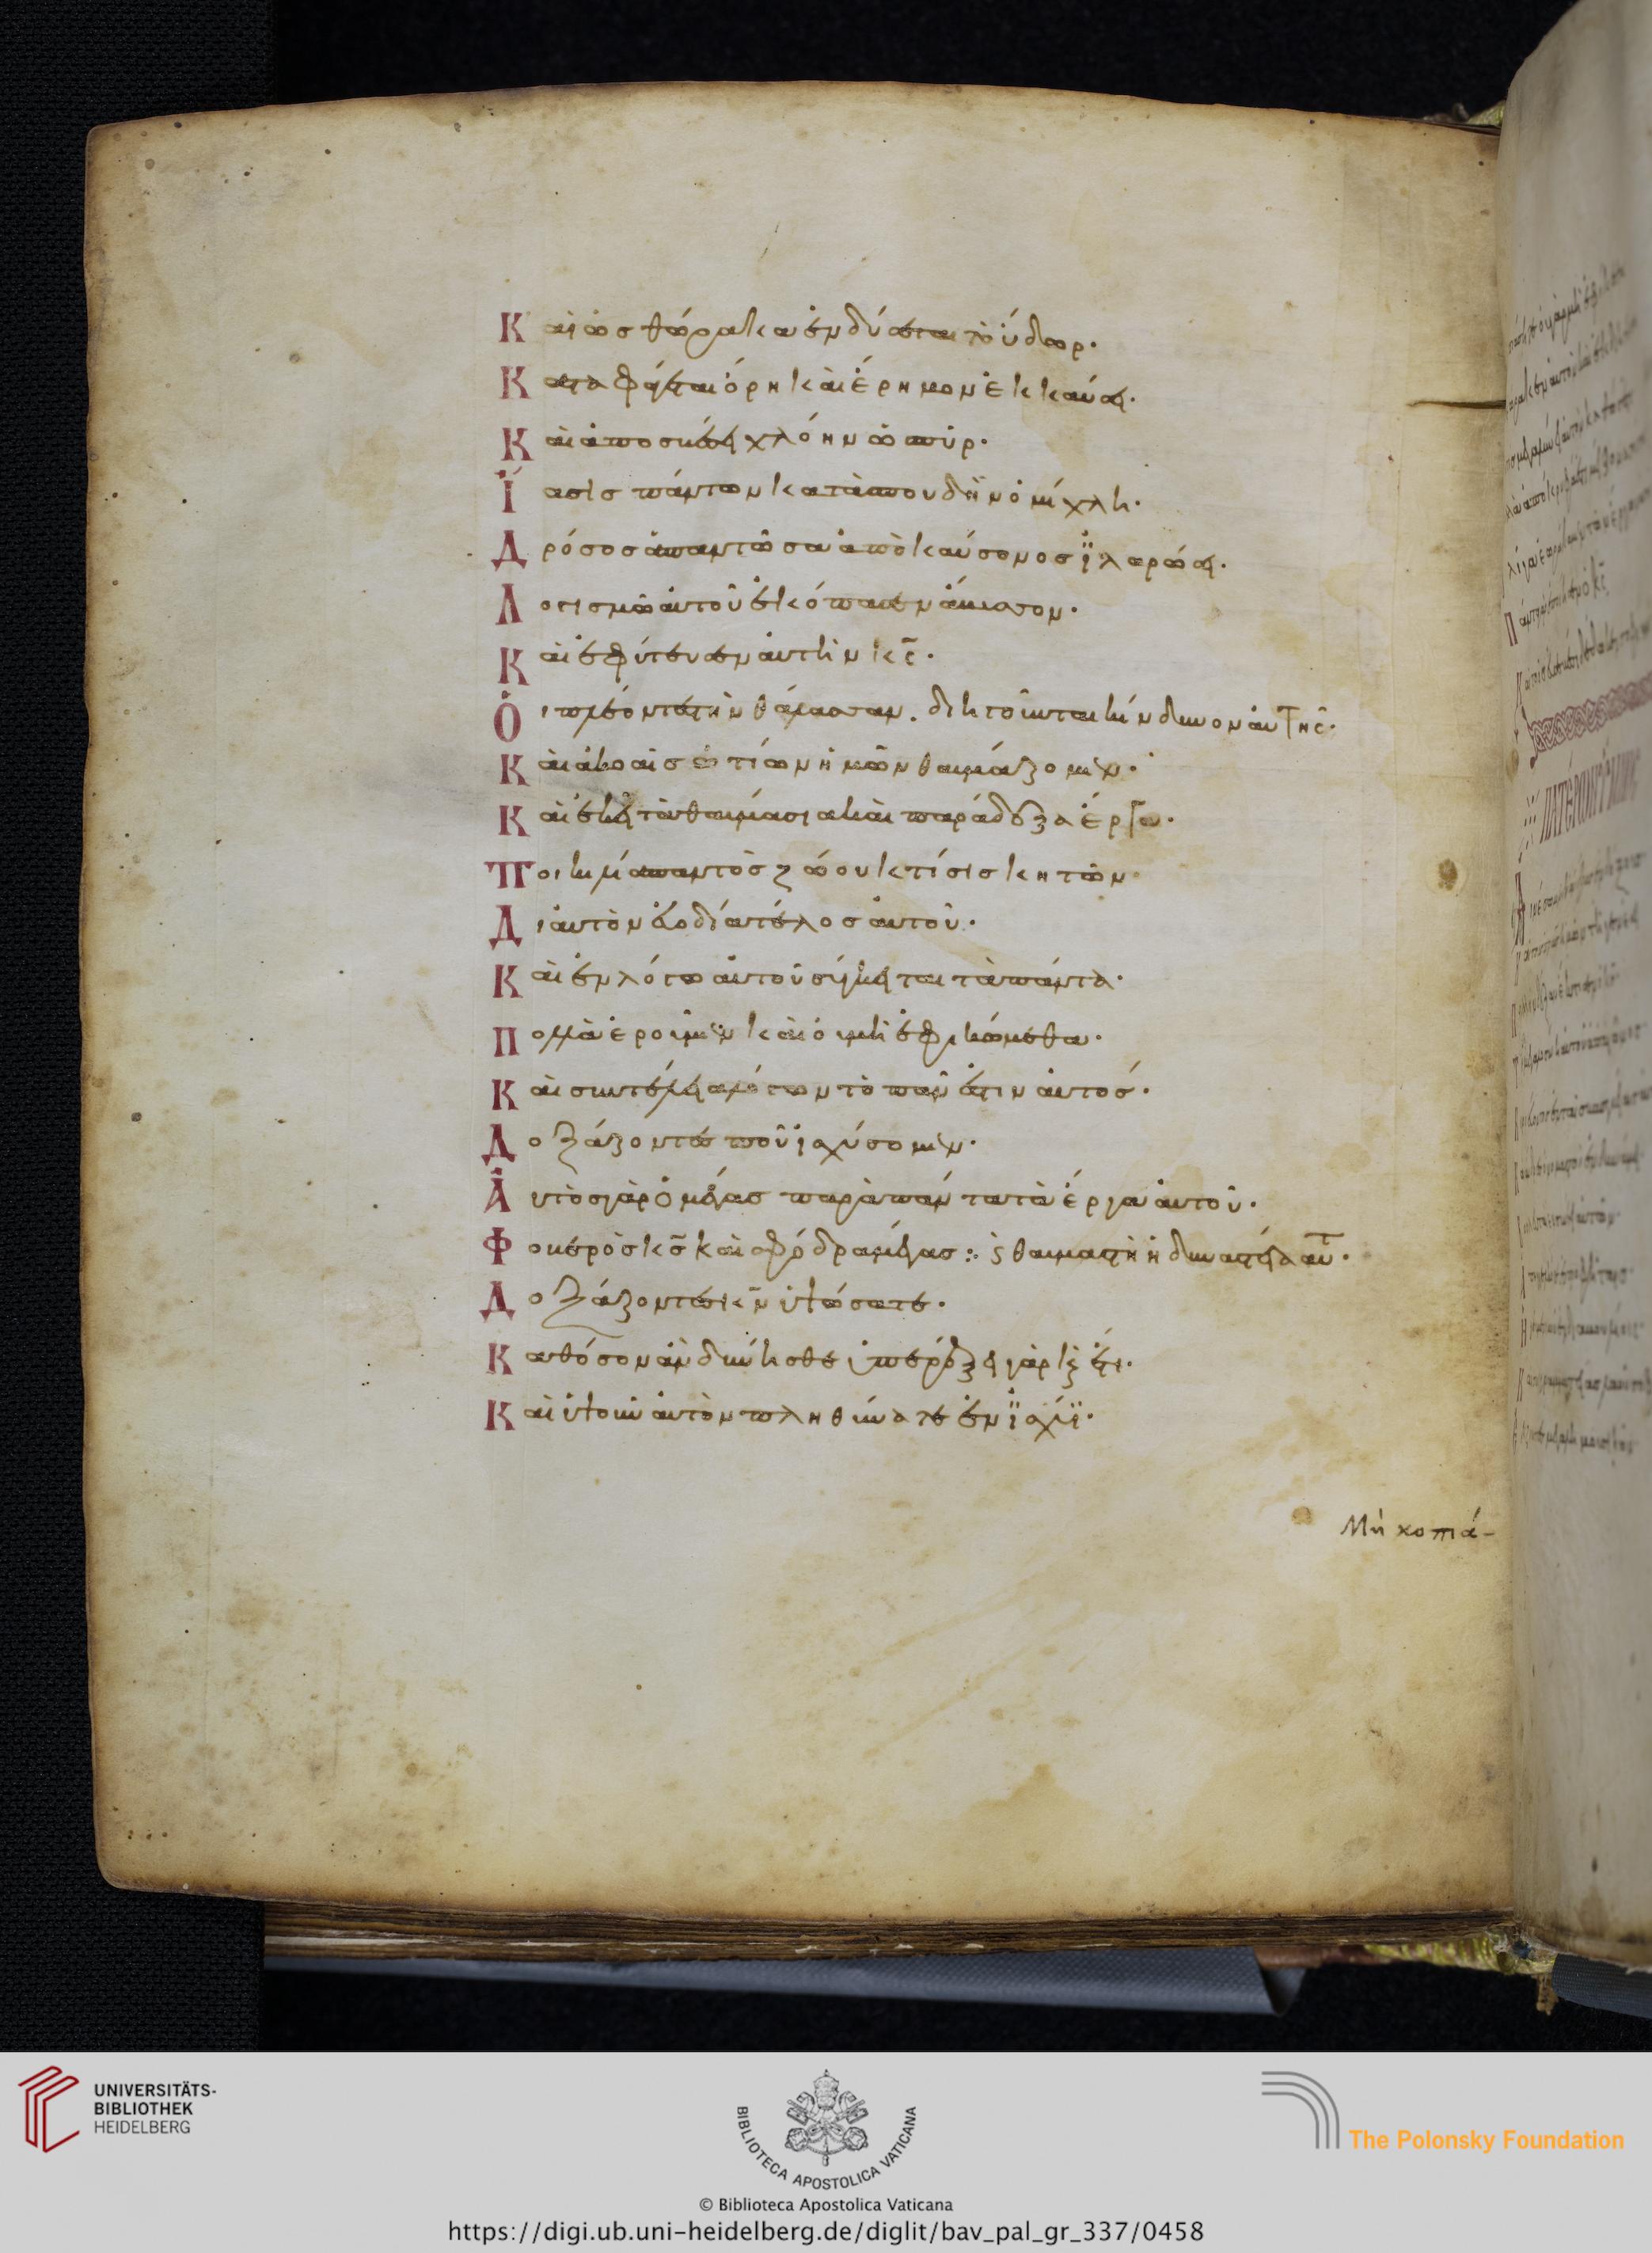 Καὶ ὡς θώρακα ἐνδύσεται τὸ ὕδωρ·
Καταφάγεται ὄρη καὶ ἔρημον ἐκκαύσει·
Καὶ ἀποσβέσει χλόην ὡς πῦρ·
Ἴασις πάντων κατὰ σπουδὴν ὁμίχλη·
Δρόσος ἀπαντῶσα ἀπὸ καύσονος ἱλαρώσει·
Λογισμῶ αὐτοῦ ἐκόπασεν ἄβυσσον·
Καὶ ἐφύτευσεν αὐτὴν ις·
Οἱ πλέοντες τὴν θάλασσαν. διηγοῦνται κίνδυνον αὐτῆς·
Καὶ ἀκοαῖς ὠτίων ἡμῶν θαυμάζομεν·
Καὶ ἐκεῖ τὰ θαυμάσια καὶ παράδοξα ἔργα·
Ποικιλία παντὸς ζώου κτίσις κητῶν
Δι αὐτὸν εὐοδία τέλος αὐτοῦ·
Καὶ ἐν λόγω αὐτοῦ σύγκειται τὰ πάντα·
Πολλὰ ἐροῦμεν καὶ οὐ μὴ ἐφικώμεθα·
Καὶ συντέλεια λόγων τὸ πᾶν ἐστιν αὐτός·
Δοξάζοντες ποῦ ἰσχύσομεν·
Αὐτὸς γὰρ ὁ μέγας παρὰ πάντα τὰ ἔργα αὐτοῦ·
Φοβερὸς κς καὶ σφόδρα μέγας: ς θαυμαστὴ ἡ δυναστεία αυτ·
Δοξάζοντες κν ὑψώσατε·
Καθόσον ἂν δύνησθε ὑπερέξει γὰρ κ ἔτι·
Καὶ ὑψοῦν αὐτὸν πληθύνατε ἐν ἰσχύϊ·
Μὴ κοπιά-
UNIVERSITÄTS-
BIBLIOTHEK
HEIDELBERG
BIBLIOTECA APOSTOLICA VATICANA
The Polonsky Foundation
© Biblioteca Apostolica Vaticana
https://digi.ub.uni-heidelberg.de/diglit/bav_pal_gr_337/0458